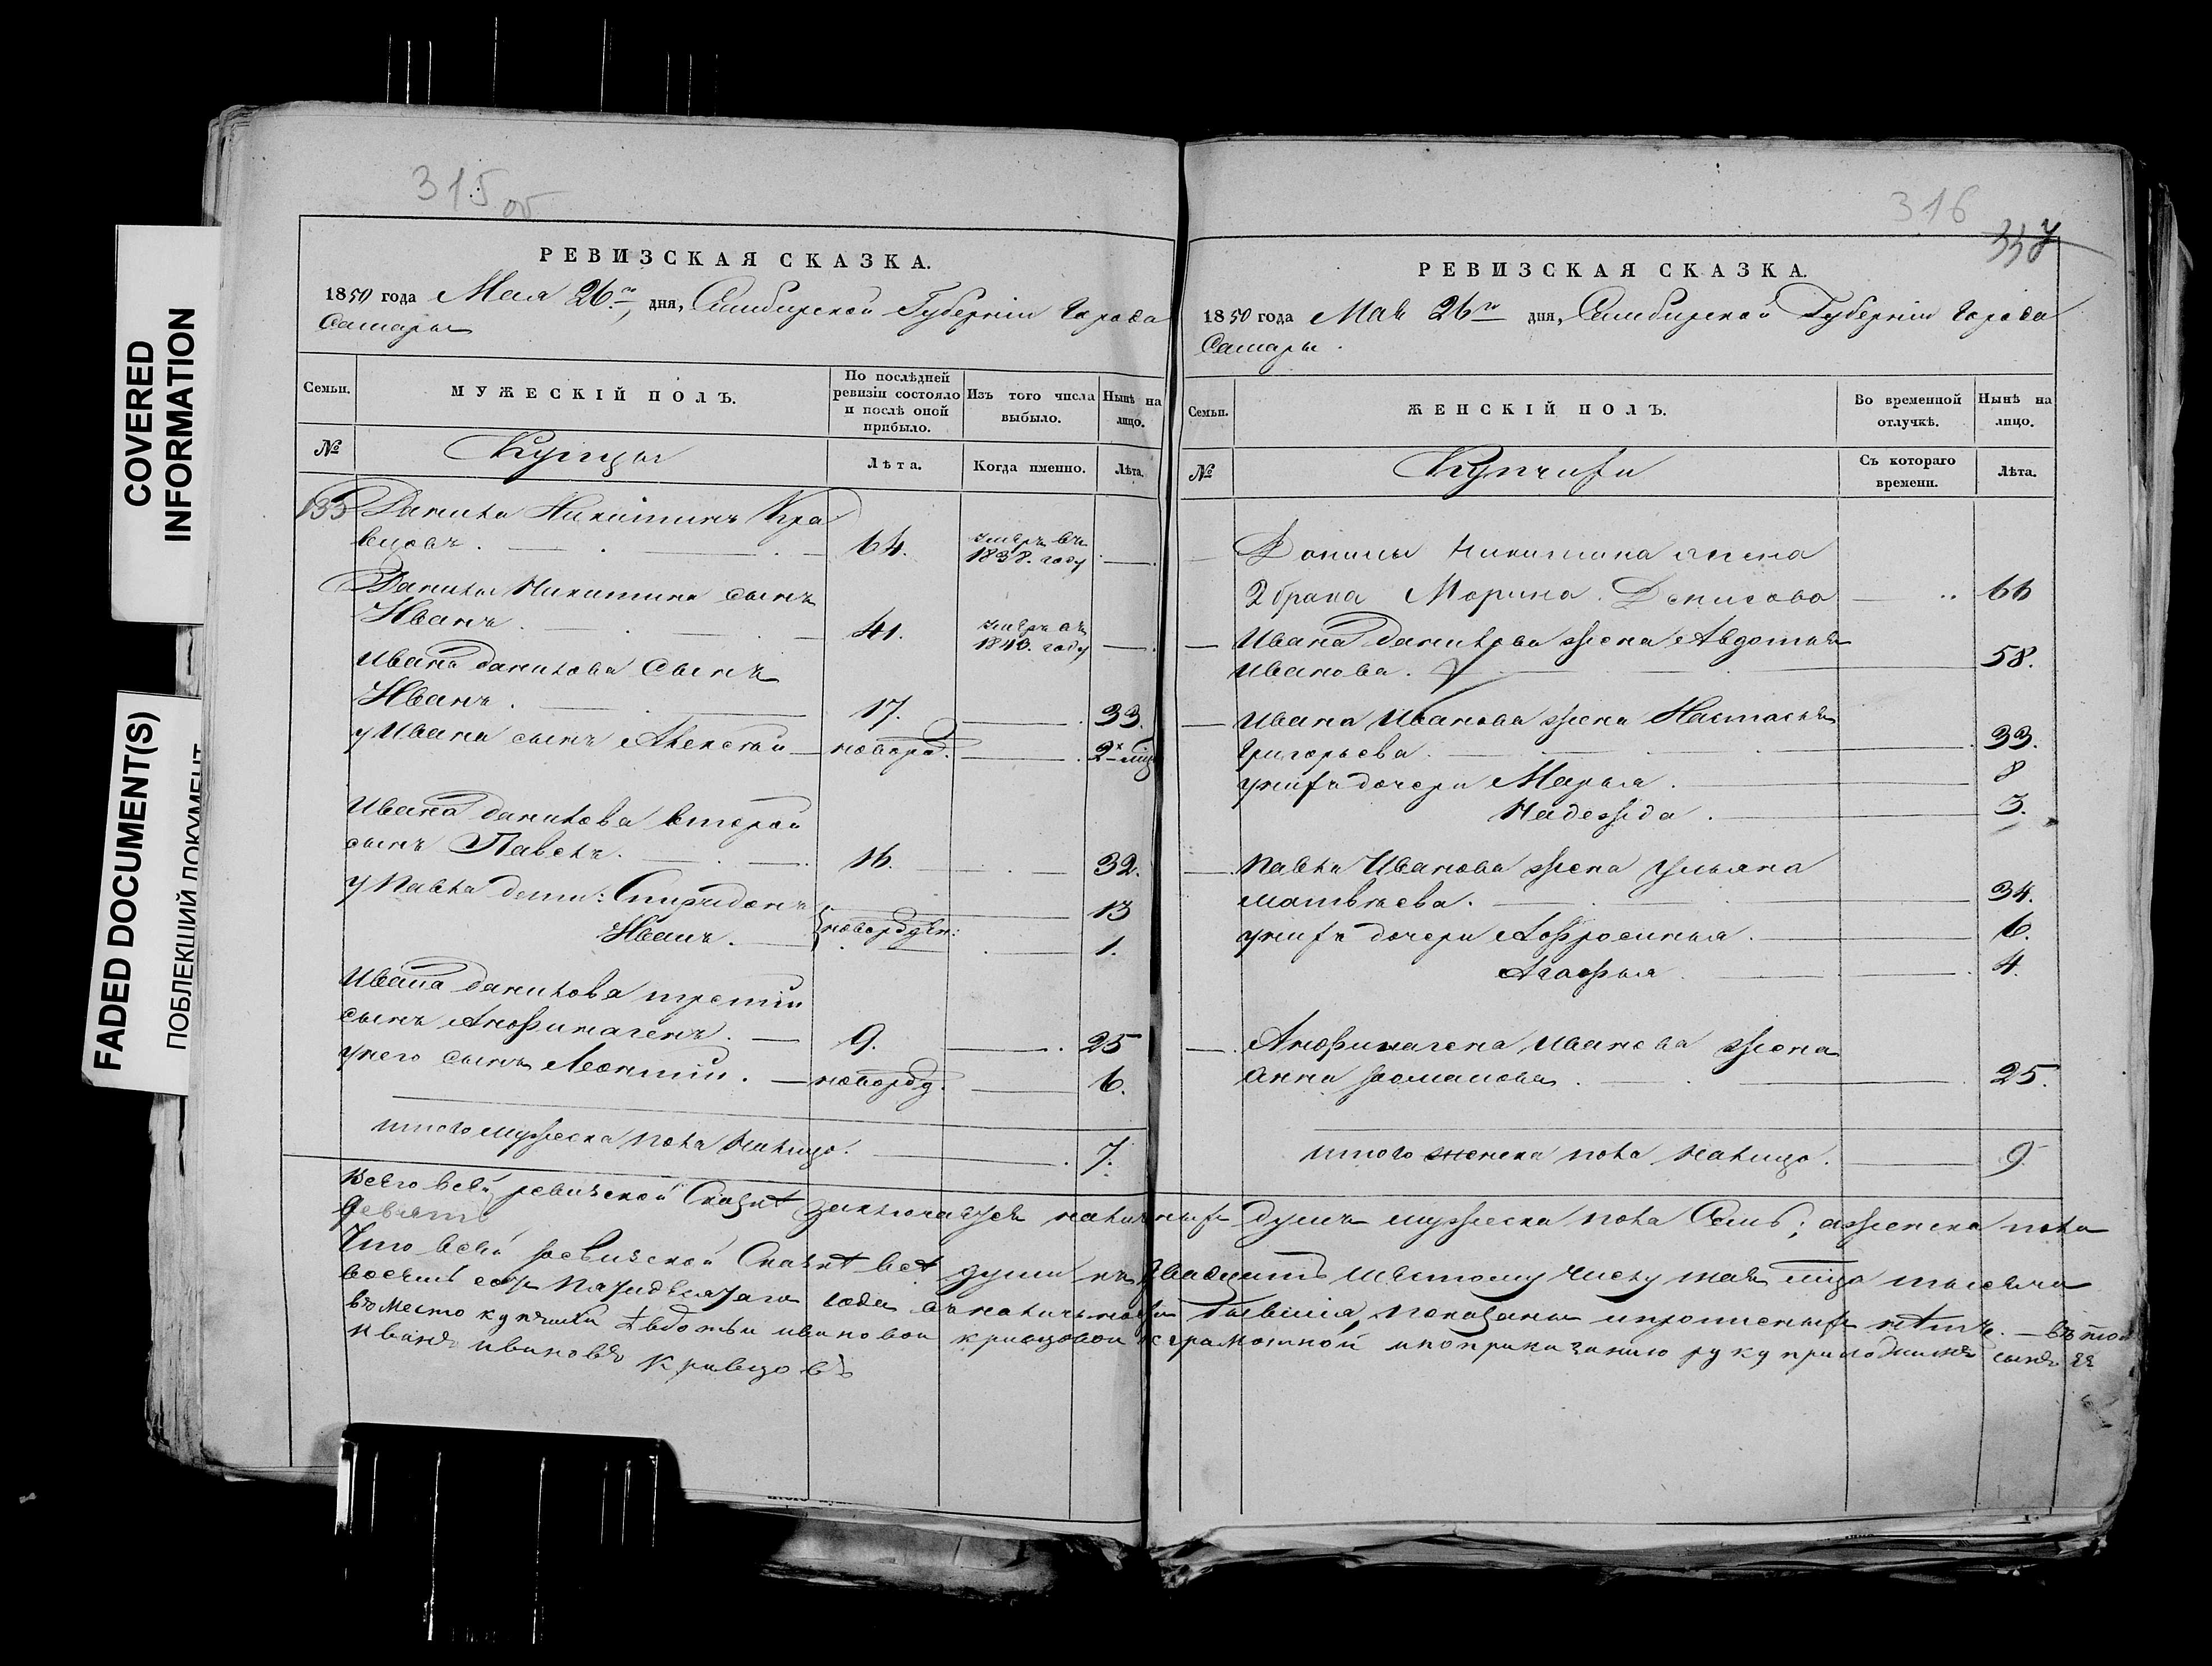 COVERED
INFORMATION
FADED DOCUMENT(S)
ПОБЛЕКШИЙ ДОКУМЕНТ
315 об
РЕВИЗСКАЯ СКАЗКА.
1850 года Мая 26го дня, Симбирской Губернiи города
Самары
Семьи.
МУЖЕСКIЙ ПОЛЪ.
По послѣдней ревизiи состояло и послѣ оной прибыло.
Изъ того числа выбыло.
Нынѣ на лицо.
№
Купцы
Лѣта.
Когда именно.
Лѣта.
135 Данила Никитинъ Кра
вцовъ. 64. умеръ въ 1838. году
Данилы Никитина сынъ
Иванъ. 41. умеръ въ 1840. году
Ивана Данилова Сынъ
Иванъ. 17. 33.
у Ивана сынъ Алексѣй новорд. 2х мца
Ивана Данилова второй
сынъ Павелъ. 16. 32.
у Павла дети: Спиридонъ 13
новоржден:
Иванъ. 1.
Ивана Данилова третiй
сынъ Анофиногенъ. 9. 25
унего сынъ Леонтiй. новорд. 6.
итого мужеска пола налицо. 7.
316
337
РЕВИЗСКАЯ СКАЗКА.
1850 года Мая 26го дня, Симбирской Губернiи города
Самары.
Семьи.
ЖЕНСКIЙ ПОЛЪ.
Во временной отлучкѣ.
Нынѣ на лицо.
№
Купчихи
Съ котораго времени.
Лѣта.
Данилы Никитина жена
2 брака Марина Денисова 66
Ивана Данилова жена Авдотья
Иванова. 58.
Ивана Иванова жена Настасья
Григорьева 33.
унихъ дочери Марья. 8
Надежда. 3.
Павла Иванова жена Ульяна
Матвѣева. 34.
унихъ дочери Афросинья. 6.
Агафья 4.
Анофиногена Иванова жена
Анна Романова 25.
итого женска пола налицо. 9
Всего всей ревизской Сказкѣ заключается наличныхъ душъ мужеска пола Семь; а женска пола
девять
Что всей ревизской Сказкѣ всѣ души къ двадцать шестому числу мая мца тысяча
восемь сотъ пятидесятаго года въ наличности бывшiя, показаны и пропискныхъ нѣтъ. — въ том
вомѣсто купчихи Авдотьи ивановой кривцовой неграмотной ипоприказанию руку приложилъ сынъ ея
иванъ ивановъ Кривцовъ